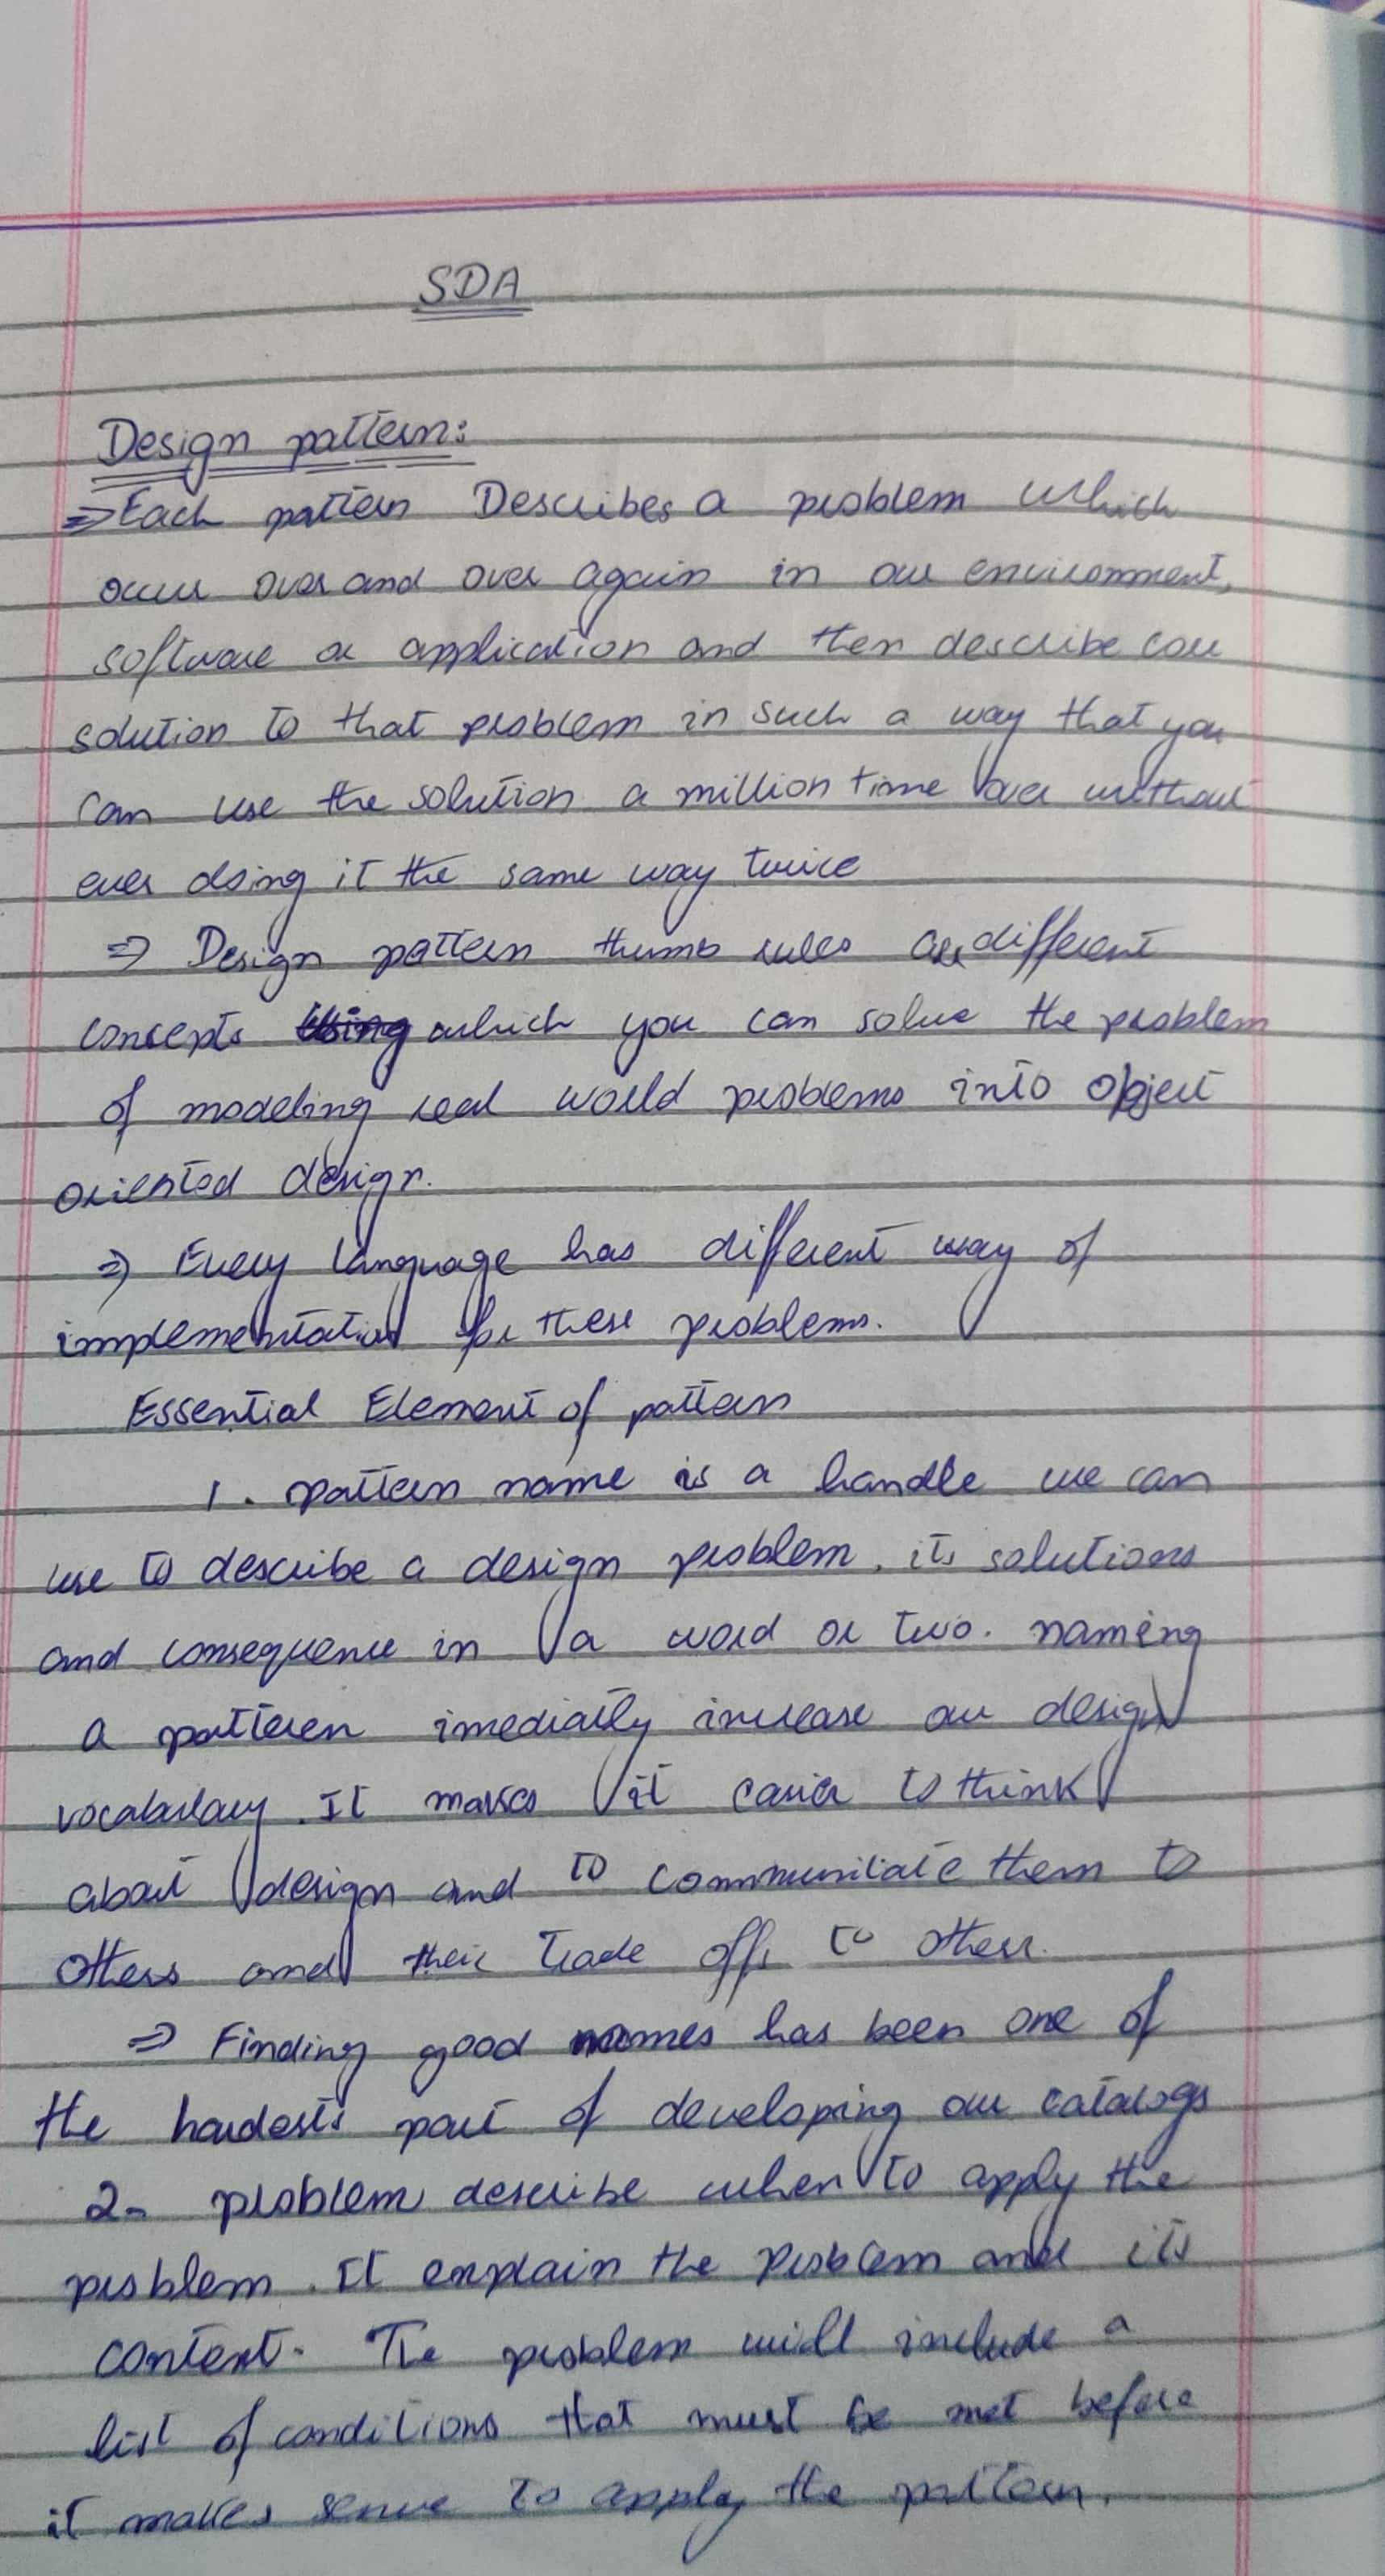 SDA
Design pattern:
⇒ Each pattern Describes a problem which
occur over and over again in our environment,
software or application and then describe core
solution to that problem in such a way that you
can use the solution a million time over without
ever doing it the same way twice
⇒ Design pattern thumb rules are different
concepts using which you can solve the problem
of modeling real world problems into object
oriented design.
⇒ Every language has different way of
implementation for these problems.
Essential Element of pattern
1. pattern name is a handle we can
use to describe a design problem, its solutions
and consequence in a word or two. naming
a patteren imediatly increase our design
vocabulary. It makes it easier to think
about design and to communicate them to
others and their trade offs to others.
⇒ Finding good names has been one of
the hardests part of developing our catalogs
2- problem describe when to apply the
problem. It explain the problem and its
context. The problem will include a
list of conditions that must be met before
it makes sense to apply the pattern.